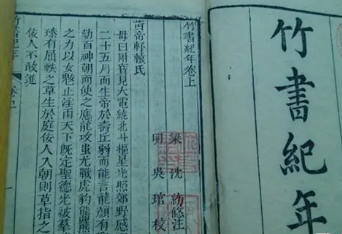 竹書紀年
竹書紀年卷上
梁沈約修注
明吳琯校
黃帝軒轅氏
母曰附寶見大電繞北斗樞星光照郊野感
二十五月而生帝於壽丘弱而能言龍顏有
劾百神朝而使之應龍攻蚩尤戰虎豹熊羆
之力以女魃止淫雨天下既定聖德光被羣
臻有屈軼之草生於庭佞人入朝則草指之
佞人不敢進